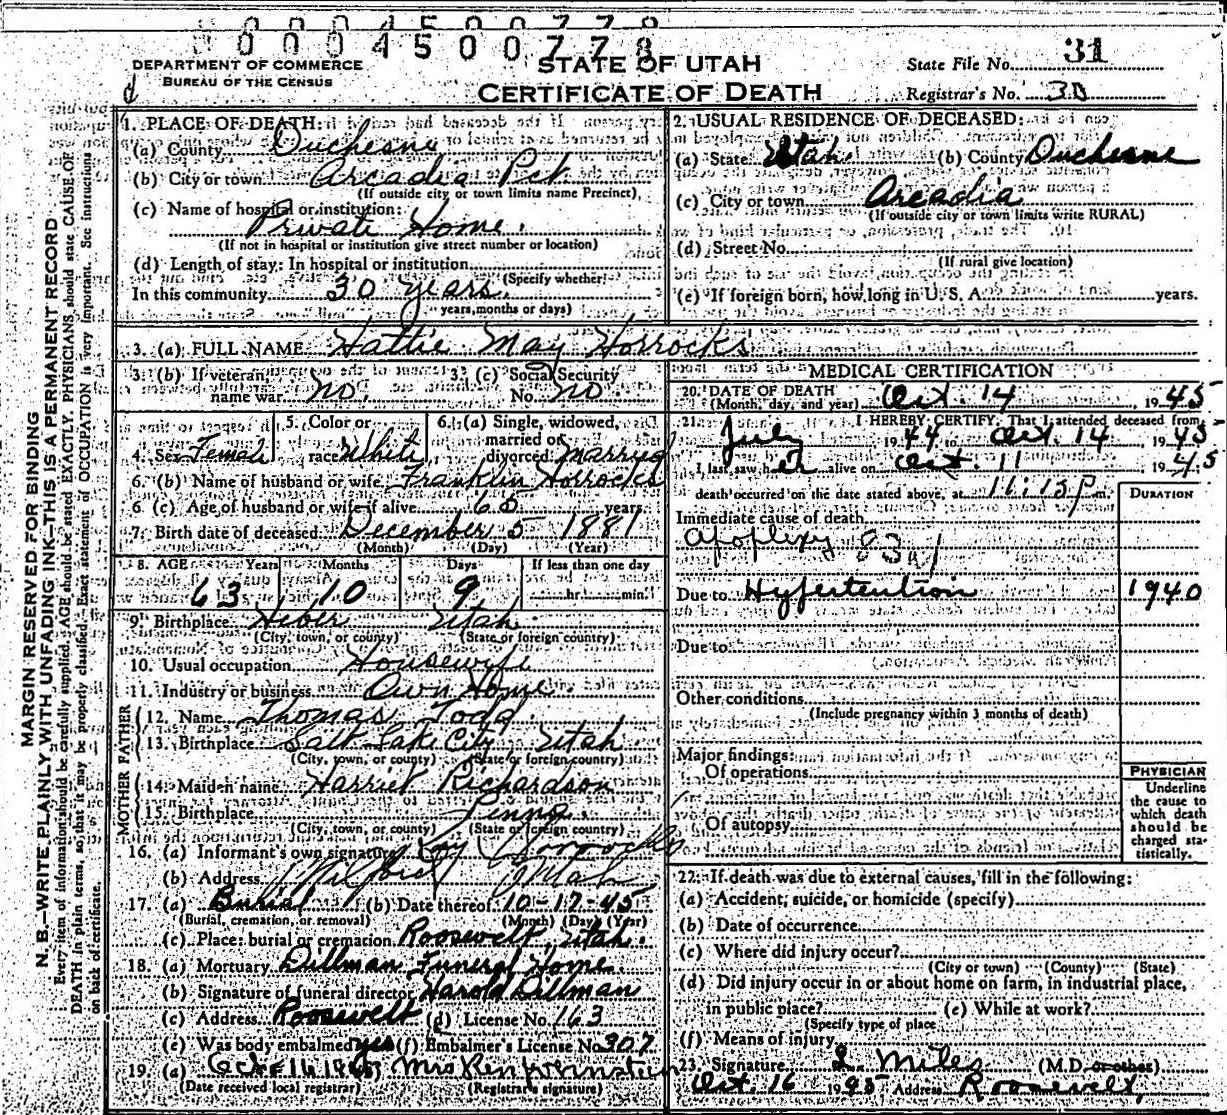 0004500778
DEPARTMENT OF COMMERCE
BUREAU OF THE CENSUS
STATE OF UTAH
CERTIFICATE OF DEATH
State File No. 31
Registrar's No. 30
MARGIN RESERVED FOR BINDING
N. B.—WRITE PLAINLY WITH UNFADING INK—THIS IS A PERMANENT RECORD
Every item of information should be carefully supplied. AGE should be stated EXACTLY. PHYSICIANS should state CAUSE OF
DEATH in plain terms, so that it may be properly classified. Exact statement of OCCUPATION is very important. See instructions
on back of certificate.
1. PLACE OF DEATH:
(a) County Duchesne
(b) City or town Arcadia Pct
(If outside city or town limits name Precinct)
(c) Name of hospital or institution:
Private Home.
(If not in hospital or institution give street number or location)
(d) Length of stay: In hospital or institution
(Specify whether
In this community 30 years.
years, months or days)
2. USUAL RESIDENCE OF DECEASED:
(a) State Utah (b) County Duchesne
(c) City or town Arcadia
(If outside city or town limits write RURAL)
(d) Street No.
(If rural give location)
(e) If foreign born, how long in U. S. A. years.
3. (a) FULL NAME Hattie May Horrocks
3. (b) If veteran, name war no. 3. (c) Social Security No. no.
4. Sex Female 5. Color or race White 6. (a) Single, widowed, married or divorced Married
6. (b) Name of husband or wife Franklin Horrocks
6 (c) Age of husband or wife if alive 65 years
7. Birth date of deceased December 5 1881
(Month) (Day) (Year)
8. AGE Years Months Days If less than one day
63 10 9 hr. min.
9. Birthplace Heber Utah
(City, town, or county) (State or foreign country)
10. Usual occupation Housewife
11. Industry or business Own Home.
FATHER
12. Name Thomas Todd
13. Birthplace Salt Lake City Utah.
(City, town, or county) (State or foreign country)
MOTHER
14. Maiden name Harriet Richardson
15. Birthplace Penna.
(City, town, or county) (State or foreign country)
16. (a) Informant's own signature Roy Horrocks
(b) Address Milford Utah
17. (a) Burial (b) Date thereof 10-17-45
(Burial, cremation, or removal) (Month) (Day) (Year)
(c) Place: burial or cremation Roosevelt, Utah.
18. (a) Mortuary Dillman Funeral Home.
(b) Signature of funeral director Harold Dillman
(c) Address Roosevelt (d) License No. 163
(e) Was body embalmed yes (f) Embalmer's License No. 307
19. (a) Oct 16 1945 Mrs
(Date received local registrar) (Registrar's signature)
MEDICAL CERTIFICATION
20. DATE OF DEATH
(Month, day, and year) Oct. 14, 1945
21. I HEREBY CERTIFY, That I attended deceased from
July 1944 to Oct. 14 1945
I last saw her alive on Oct. 11 1945
death occurred on the date stated above, at 11:15 p m.
DURATION
Immediate cause of death
apoplexy 83a1
Due to Hypertention 1940
Due to
Other conditions
(Include pregnancy within 3 months of death)
Major findings:
Of operations
Of autopsy
PHYSICIAN
Underline
the cause to
which death
should be
charged sta-
tistically.
22. If death was due to external causes, fill in the following:
(a) Accident, suicide, or homicide (specify)
(b) Date of occurrence
(c) Where did injury occur?
(City or town) (County) (State)
(d) Did injury occur in or about home on farm, in industrial place,
in public place? (e) While at work?
(Specify type of place
(f) Means of injury
23. Signature L. Miles (M.D. or other)
Oct. 16 1945 Address Roosevelt,